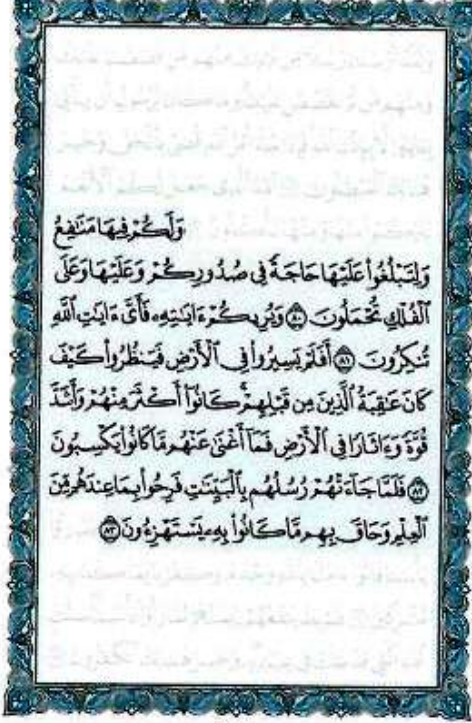 وَلَكُمْ فِيهَا مَنَٰفِعُ
وَلِتَبْلُغُوا۟ عَلَيْهَا حَاجَةً فِى صُدُورِكُمْ وَعَلَيْهَا وَعَلَى
ٱلْفُلْكِ تُحْمَلُونَ ٨٠ وَيُرِيكُمْ ءَايَٰتِهِۦ فَأَىَّ ءَايَٰتِ ٱللَّهِ
تُنكِرُونَ ٨١ أَفَلَمْ يَسِيرُوا۟ فِى ٱلْأَرْضِ فَيَنظُرُوا۟ كَيْفَ
كَانَ عَٰقِبَةُ ٱلَّذِينَ مِن قَبْلِهِمْ كَانُوٓا۟ أَكْثَرَ مِنْهُمْ وَأَشَدَّ
قُوَّةً وَءَاثَارًا فِى ٱلْأَرْضِ فَمَآ أَغْنَىٰ عَنْهُم مَّا كَانُوا۟ يَكْسِبُونَ
٨٢ فَلَمَّا جَآءَتْهُمْ رُسُلُهُم بِٱلْبَيِّنَٰتِ فَرِحُوا۟ بِمَا عِندَهُم مِّنَ
ٱلْعِلْمِ وَحَاقَ بِهِم مَّا كَانُوا۟ بِهِۦ يَسْتَهْزِءُونَ ٨٣